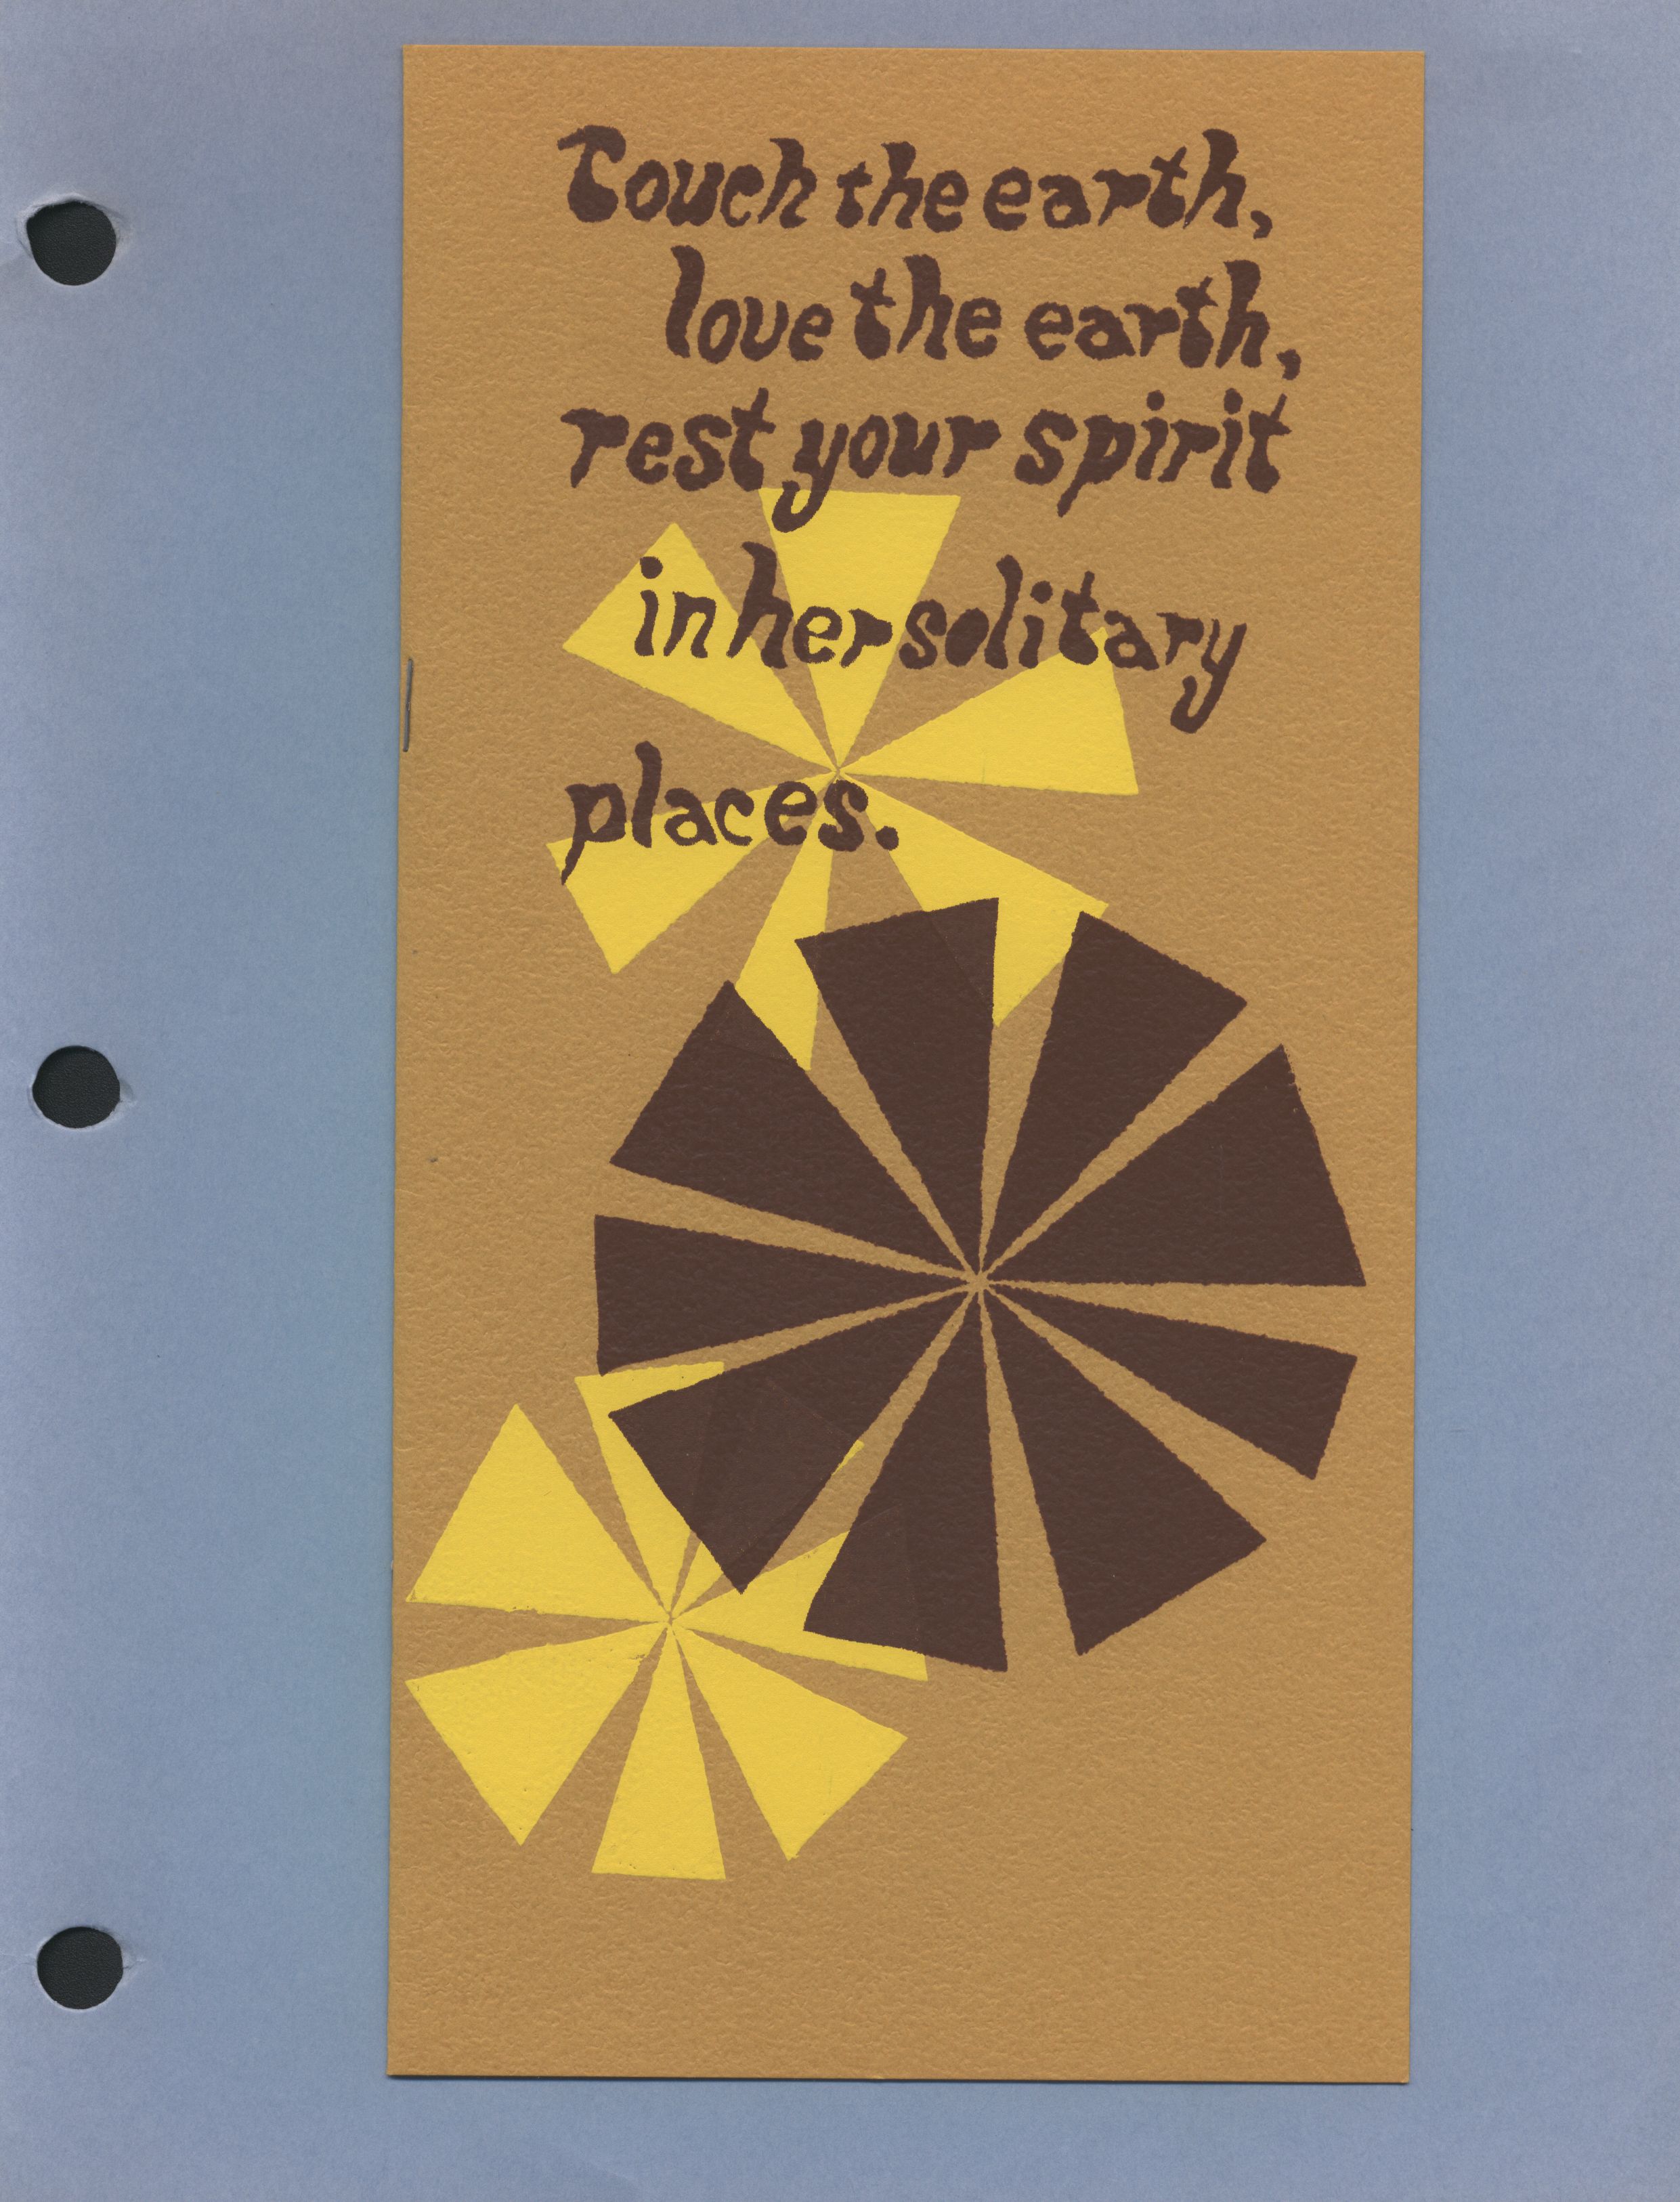 Touch the earth,
love the earth,
rest your spirit
in her solitary
places.